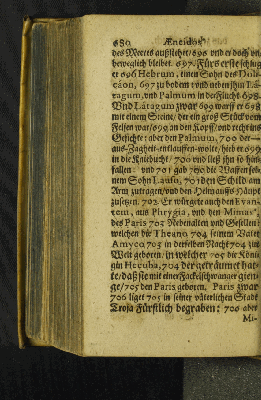 680 Æneidos
des Meeres außstehet/ 695 und er doch un-
beweglich bleibet. 697. Fürs erste schlug
er 696 Hebrum, einen Sohn des Doli-
cáon, 697 zu bodem / und neben ihm La-
tagum, und Palmum in der Flucht 698.
Und Latagum zwar 699 warff er 698
mit einem Steine/ der ein groß Stück vom
Felsen war/ 699 an den Kopff/ und recht ins
Gesichte: aber den Palmum, 700 der
aus Zagheit entlauffen wolte/ hieb er 699
in die Kniebucht/ 700 und ließ ihn so hin-
fallen: und 701 gab die Waffen sei-
nem Sohn Lauso, 701 den Schild am
Arm zutragen/ und den Helm auffs Häupt
zusetzen. 702. Er würgete auch den Evan-
tem, aus Phrygia, und den Mimas,
des Paris 703 Nebenalten und Gesellen/
welchen die Theano 704 seinem Vater
Amyco 703 in derselben Nacht 704 zur
Welt geboren, in welcher 705 die Köni-
gin Hecuba, 704 der geträumet hat-
te/ daß sie mit einer Fackel schwanger gien-
ge/ 705 den Paris geboren. Paris zwar
706 ligt 705 in seiner väterlichen Stadt
Troja Fürstlich begraben: 706 aber
Mi-